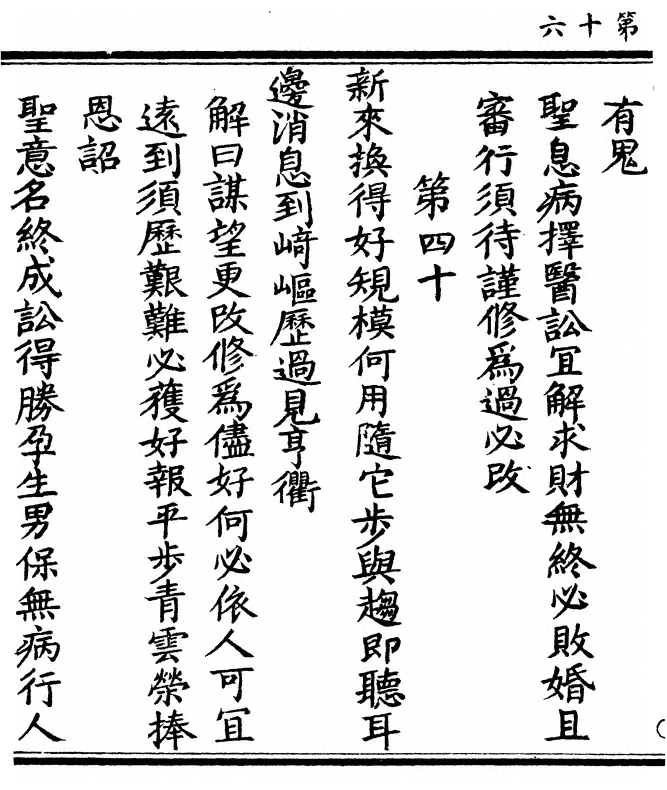 第十六
有鬼
聖息病擇醫訟冝解求財無終必敗婚且
審行須待謹修爲過必改
第四十
新來換得好規模何用隨它步與趨即聽耳
邊消息到崎嶇歷過見亨衢
解曰謀望更改修爲儘好何必依人可冝
遠到須歷艱難必獲好報平步青雲榮捧
恩詔
聖意名終成訟得勝孕生男保無病行人